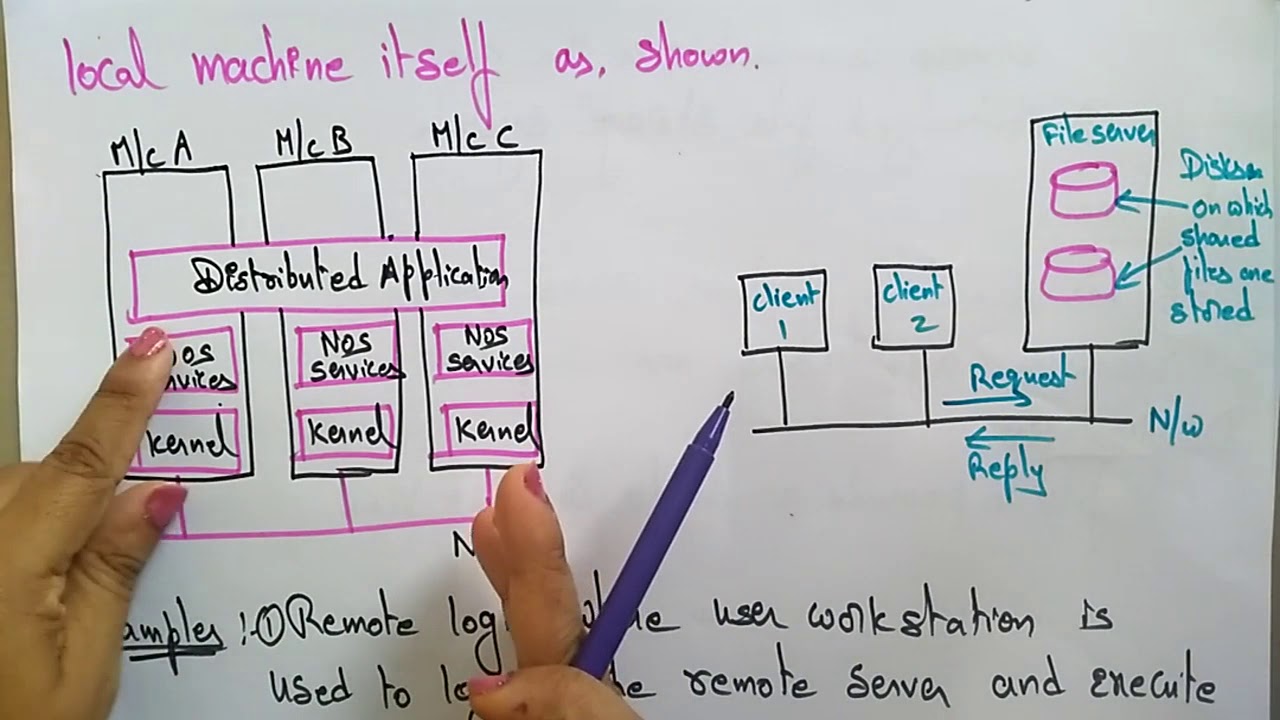 local machine itself as, shown.
M/c A
M/c B
M/c C
Distributed Application
NOS
services
NOS
services
Kernel
Kernel
Kernel
File server
Disks
on which
shared
files are
stored
client
1
client
2
Request
Reply
N/w
Remote user workstation is
used to remote server and execute